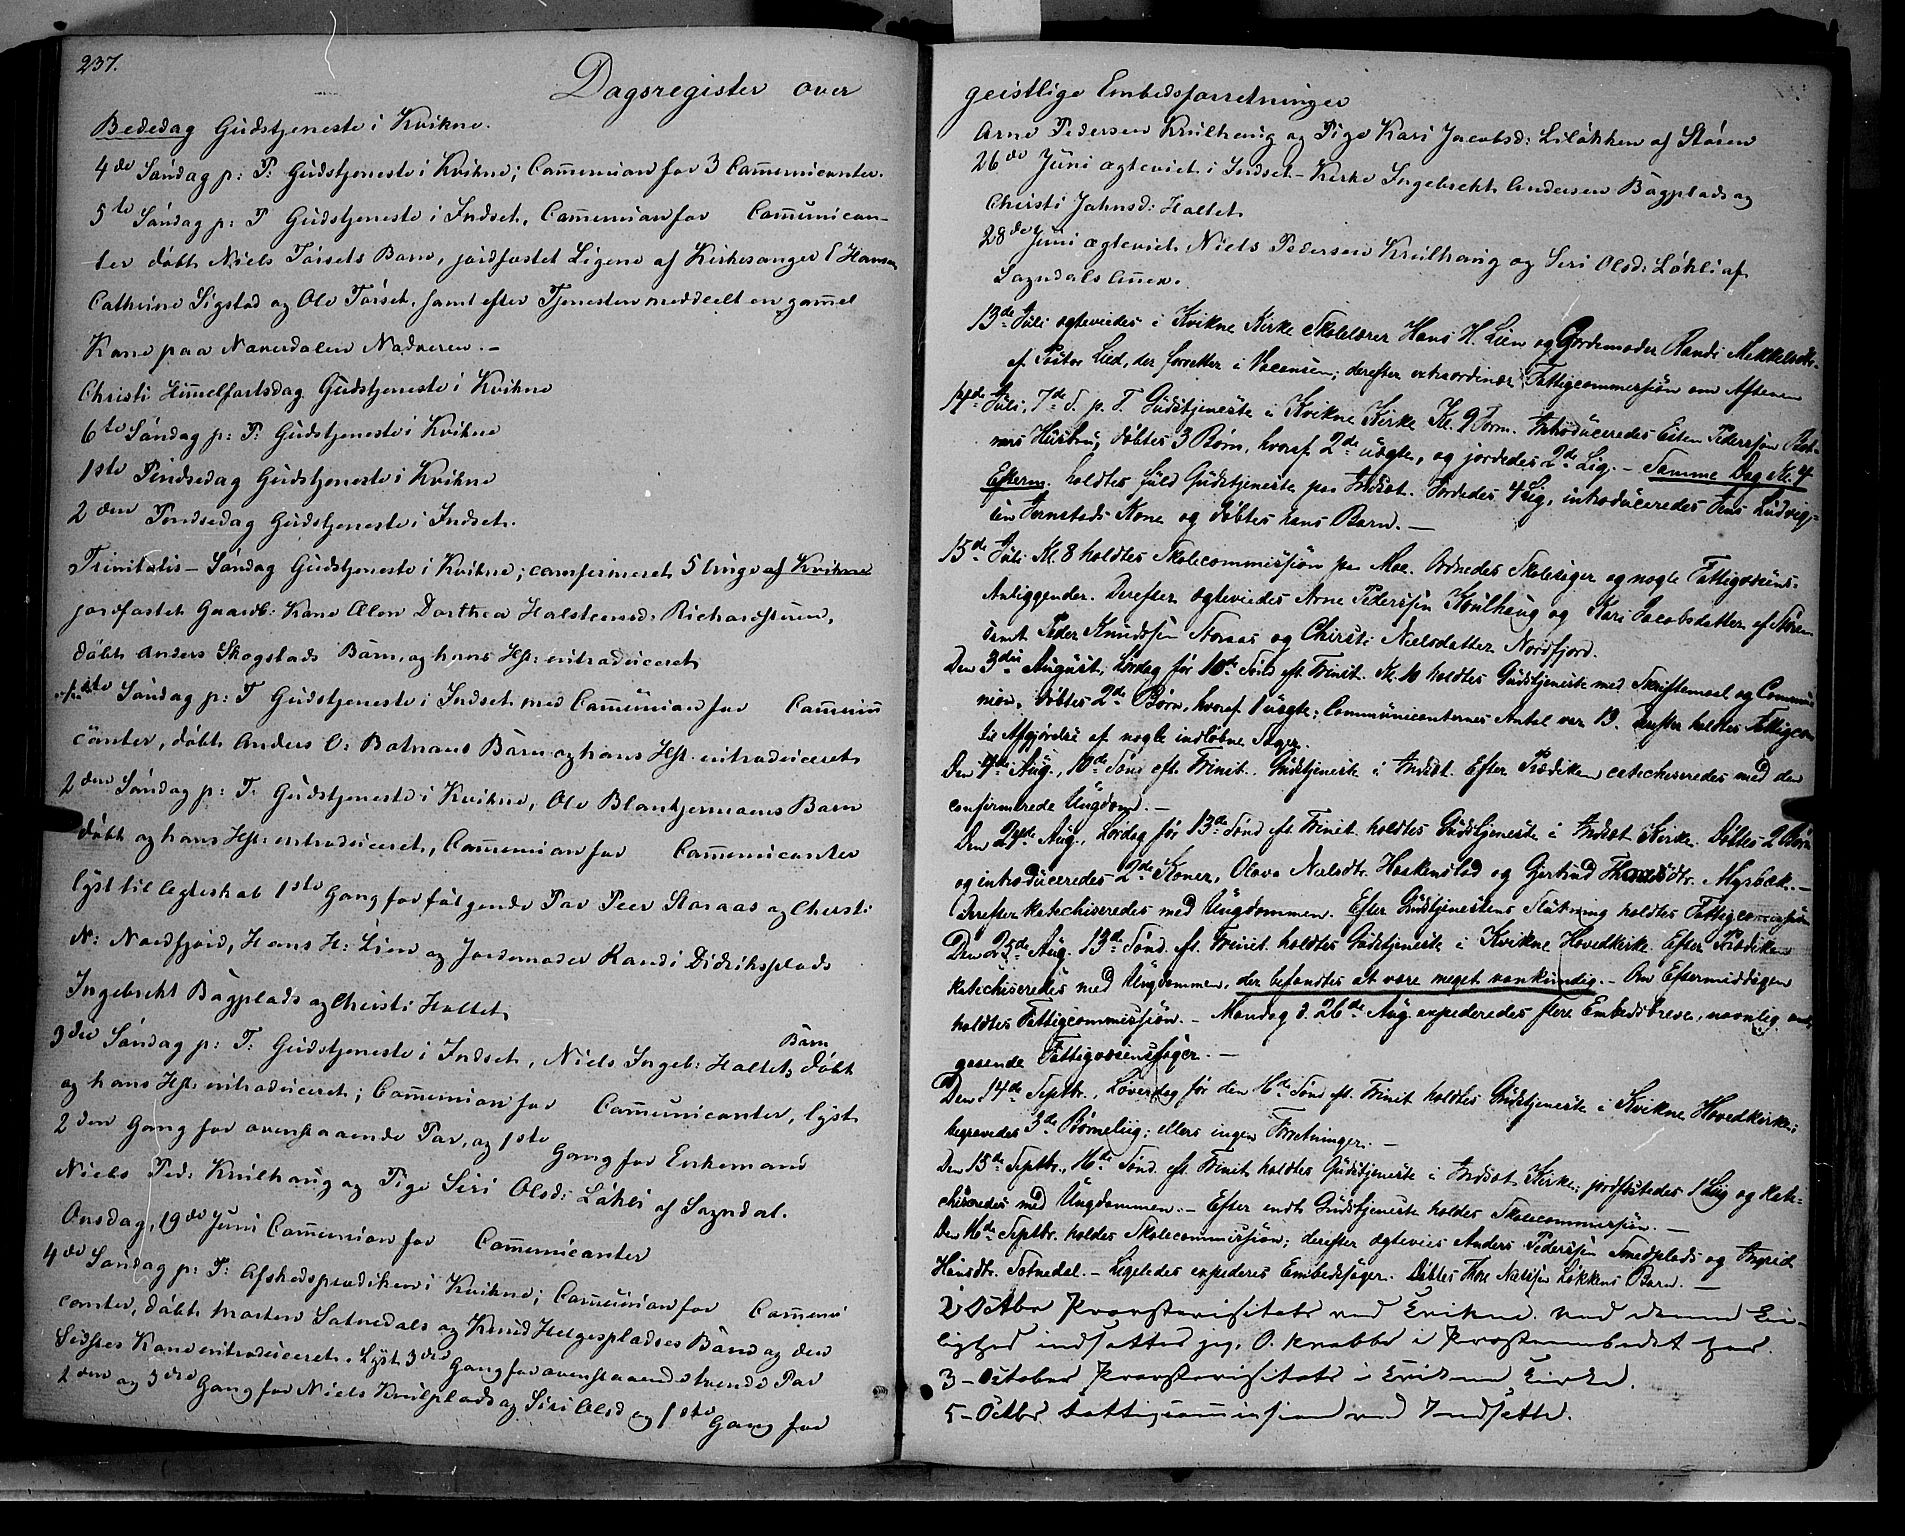 237.
Dagsregister over
Bededag Gudstjeneste i Kvikne.
4de Søndag p: P: Gudstjeneste i Kvikne; Communion for 3 Communicanter.
5te Søndag p: P Gudstjeneste i Indset, Communion for Communican-
ter døbt Niels Torsets Barn, jordfæstet Ligene af Kirkesanger Hansen
Cathrine Sigstad og Ole Torset, samt efter Tjenesten meddeelt en gammel
Kone paa Naverdalen Nadveren.-
Christi Himmelfartsdag Gudstjeneste i Kvikne
6te Søndag p: P: Gudstjeneste i Kvikne
1ste Pindsedag Gudstjeneste i Kvikne
2den Pindsedag Gudstjeneste i Indset.
Trinitatis-Søndag Gudstjeneste i Kvikne; confirmeret 5 unge af Kvikne
jordfæstet Gaardb: Kone Alen Dorthea Halsteensd: Richardstuen,
døbt Anders Skogstads Barn, og hans Hst: introduceret
1ste Søndag p: T Gudstjeneste i Indset med Communion for Communi
canter, døbt Anders O: Botnans Barn og hans Hst. introduceret
2den Søndag p: T: Gudstjeneste i Kvikne, Ole Blankjernaens Barn
døbt og hans Hst: introduceret, Communion for Communicanter
lyst til Ægteskab 1ste Gang for følgende Par Peer Storaas og Chersti
N: Nordfjord, Hans H: Lien og Jordemoder Randi Didriksplads
Ingebrekt Bagplads og Christi Haltet,
3die Søndag p: T: Gudstjeneste i Indset, Niels Ingeb: Haltets Barn døbt
og hans Hst: introduceret; Communion for Communicanter, lyst
2den Gang for ovenstaaende Par, og 1ste Gang for Enkemand
Niels Ped: Kuilhaug og Pige Siri Olsd: Løkli af Sogndal.
Onsdag, 19de Juni Communion for Communicanter
4de Søndag p: T: Afskedsprædiken i Kvikne; Communion for Communi
canter, døbt Morten Satnedals og Knud Helgespladses Barn og den
Sidstes Kone introduceret. Lyst 3die Gang for ovenstaaende trende Par
2den og 3die Gang for Niels Kuilplads og Siri Olsd og 1ste Gang for
geistlige Embedsforretninger
Arne Pedersen Kuilhaug og Pige Kari Jacobsd: Liløkken af Støren
26de Juni ægteviet i Indset-Kirke Ingebrekt Andersen Bagplads og
Christi Johnsd: Haltet
28de Juni ægteviet Niels Pedersen Kuilhaug og Siri Olsd: Løkli af
Sogndals Annex.
13de Juli ægteviedes i Kvikne Kirke Skolelærer Hans H. Lien og Gjordemoder Randi Mikkelsdtr.
af Pastor Lied, der forretter i Vacansen; derefter extraordinær Fattigcommission om Aftenen
14de Juli, 7de S. p. T. Gudstjeneste i Kvikne Kirke Kl. 9 Form. Introduceredes Esten Pederssøn Bot-
nens Hustru, døbtes 3 Børn, hvoraf 2de uægte, og jordedes 2de Lig. - Samme Dag Kl. 4
Efterm. holdtes fuld Gudstjeneste paa Indset. Jordedes 4 Lig, introduceredes Jens Ludvig-
sen Jernsteds Kone og døbtes hans Barn. -
15de Juli Kl. 8 holdtes Skolecommission paa Moe. Ordnedes Skolesager og nogle Fattigvæsens-
Anliggender. Derefter ægteviedes Arne Pederssøn Kuilhaug og Kari Jacobsdatter af Støren
samt Peder Knudssøn Storaas og Chirsti Nielsdatter Nordfjord.
Den 3die August, Lørdag før 10de Sønd eft. Trinit. Kl. 10 holdtes Gudstjeneste med Skriftemaal og Commu-
nion, døbtes 2de Børn, hvoraf 1 uægte; Communicanternes Antal var 13. Derefter holdtes Fattigcom
til Afgjørelse af nogle indløbne Sager.
Den 4de Aug., 10de Sønd eft. Trinit. Gudstjeneste i Indset. Efter Prædiken catechiseredes med den
confirmerede Ungdom. -
Den 24de Aug., Lørdag før 13de Sønd eft Trinit. holdtes Gudstjeneste i Indset Kirke. Døbtes 2 Børn
og introduceredes 2de Koner, Olava Nielsdtr. Haakenstad og Gjertrud Thomesdtr. Myrbæk. -
Derefter katechiseredes med Ungdommen. Efter Gudstjenestens Slutning holdtes Fattigcommission
Den 25de Aug. 13de Sønd. eft. Trinit. holdtes Gudstjeneste i Kvikne Hovedkirke. Efter Prædiken
katechiseredes med Ungdommen, der befandtes at være meget vankundig. - Om Eftermiddagen
holdtes Fattigcommission. - Mandag d. 26de Aug. expederedes flere Embedsbreve, navnlig an-
gaaende Fattigvæsenssager. -
Den 14de Septbr., Løverdag før den 16de Sønd eft. Trinit holdtes Gudstjeneste i Kvikne Hovedkirke;
begravedes 3de Børnelig; ellers ingen Forretninger. -
Den 15de Septbr., 16de Sønd. eft. Trinit holdtes Gudstjeneste i Indset Kirke; jordfæstedes 1 Lig og kate-
chiseredes med Ungdommen. - Efter endt Gudstjeneste holdes Skolecommission. -
Den 16de Septbr. holdes Skolecommission; derefter ægtevies Anders Pederssøn Smedplads og Ingrid
Hansdtr. Satnedal. - Ligeledes expederes Embedssager. Døbtes Hans Nilssøn Løkkens Barn. -
2 Octbr Provstevisitats ved Kvikne. Ved denne Lei-
lighed indsættes jeg, O. Krabbe i Præsteembedet her.
3-October Provstevisitats i Kvikne Kirke.
5-Octbr Fattigcommission ved Indsætte.